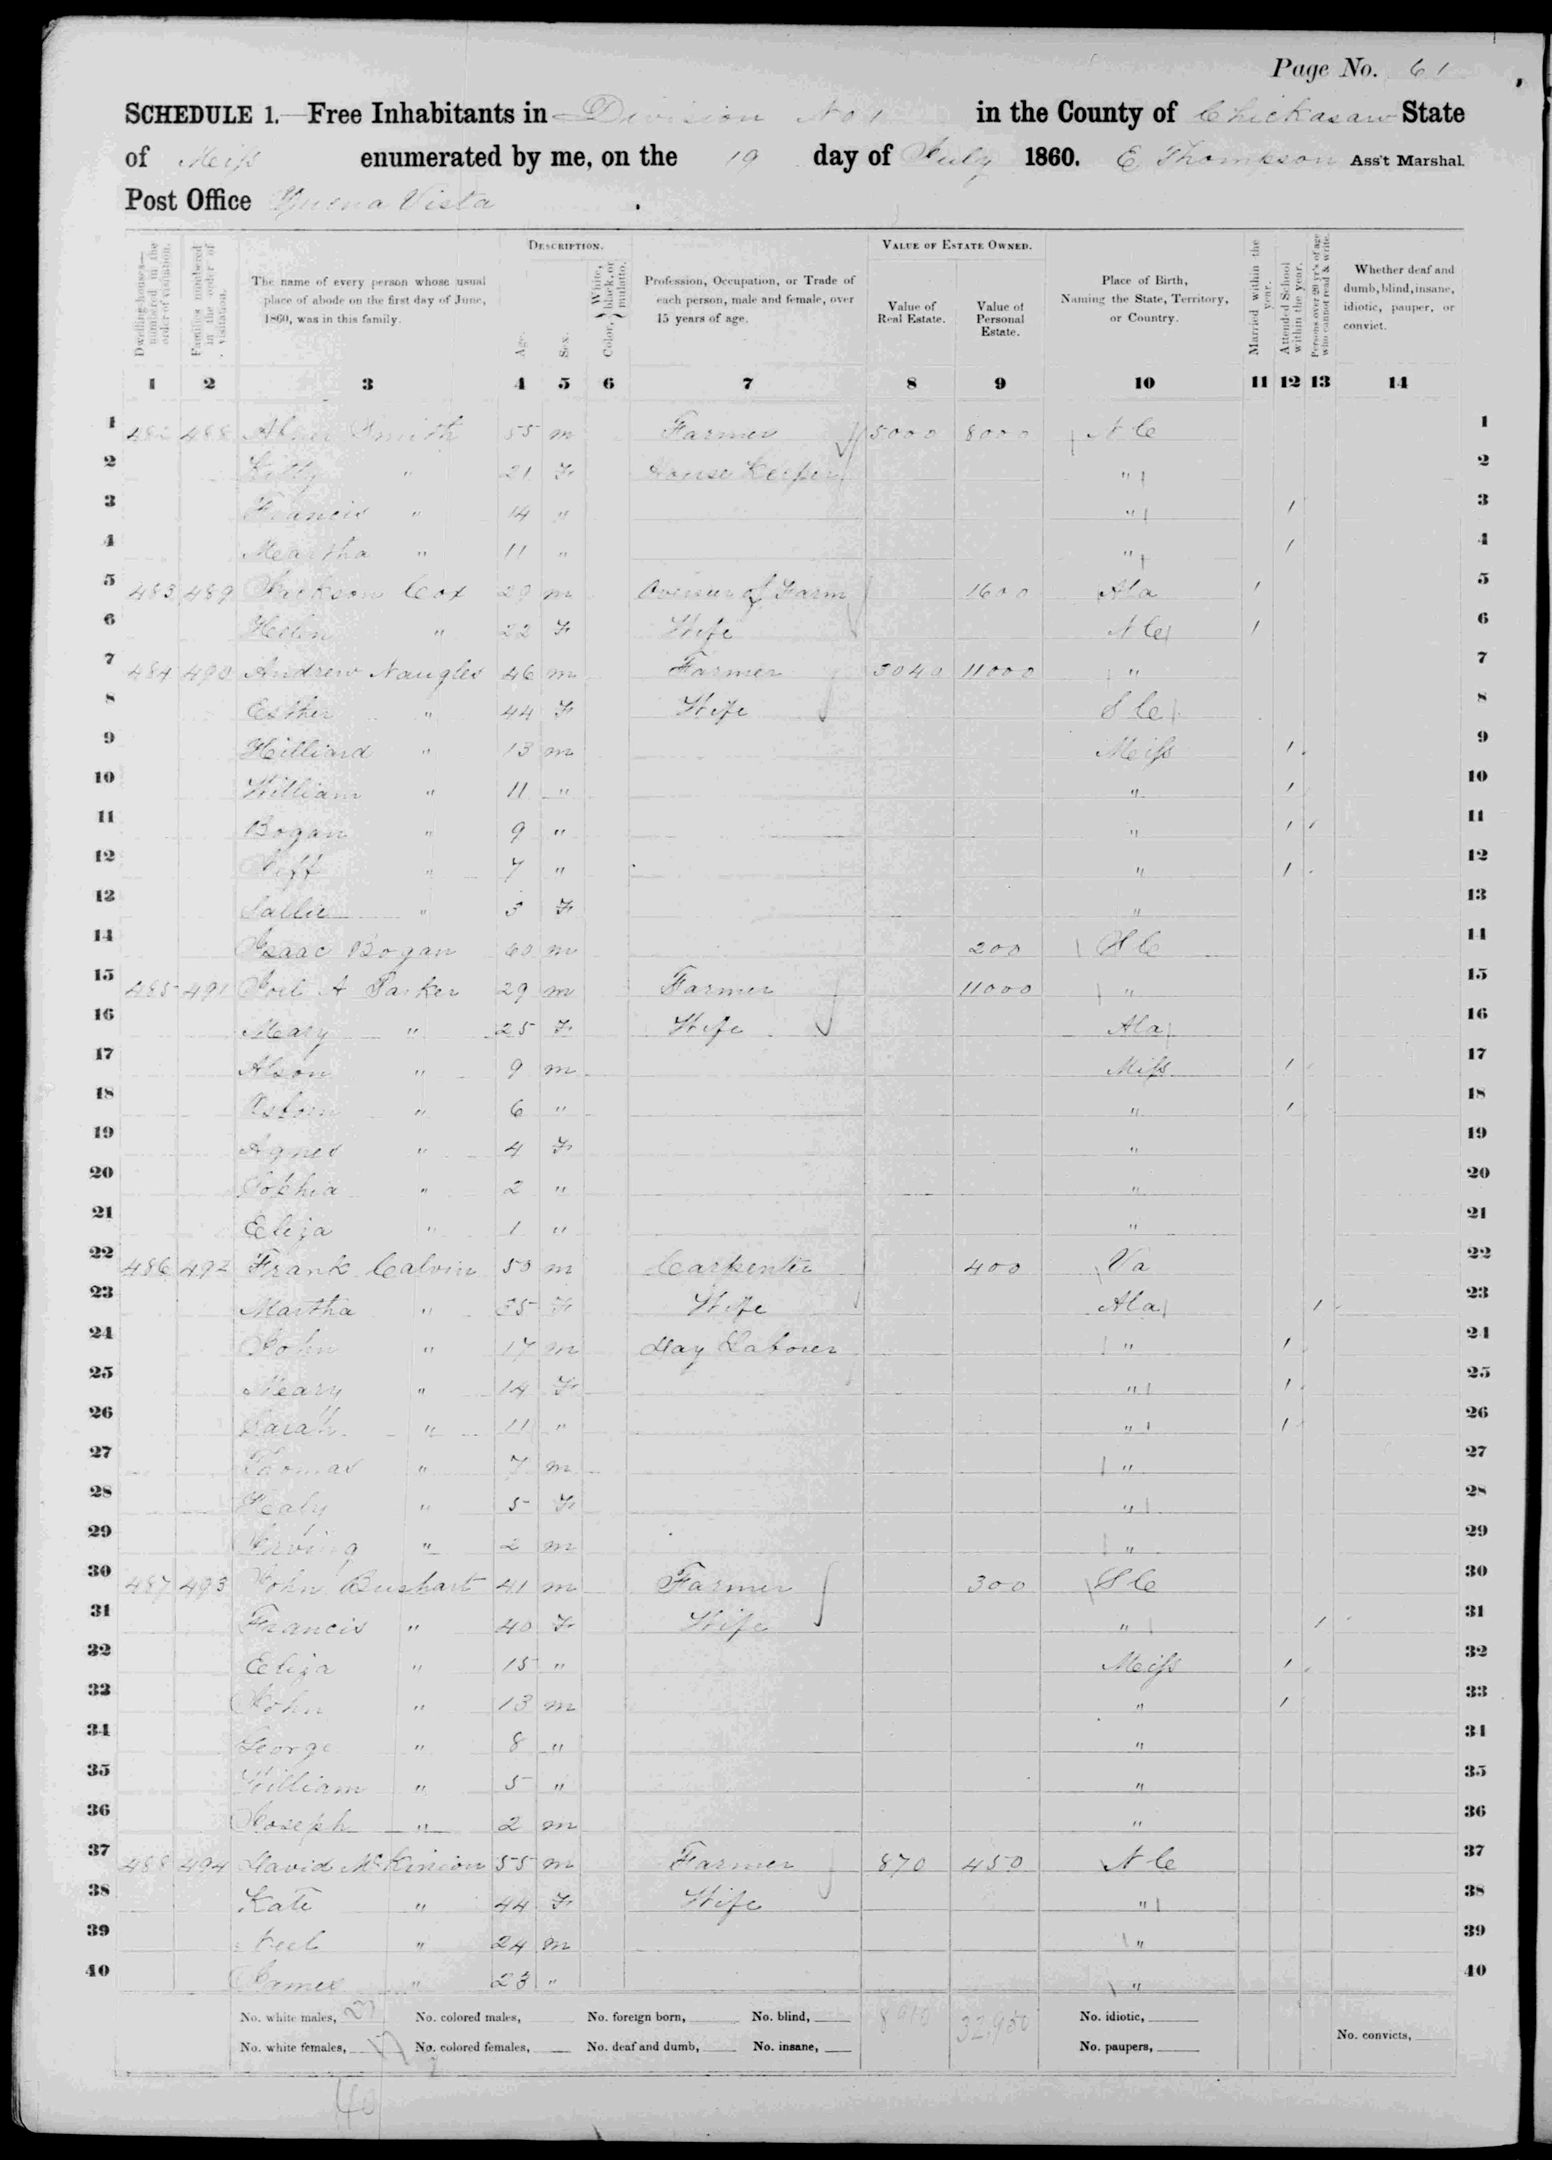 Page No. 61
SCHEDULE 1.—Free Inhabitants in Division No 1 in the County of Chickasaw State
of Miss enumerated by me, on the 19 day of July 1860. E Thompson Ass't Marshal.
Post Office Buena Vista
Dwelling-houses—numbered in the order of visitation.
Families numbered in the order of visitation.
The name of every person whose usual place of abode on the first day of June, 1860, was in this family.
DESCRIPTION.
Age.
Sex.
Color, { White, black, or mulatto.
Profession, Occupation, or Trade of each person, male and female, over 15 years of age.
VALUE OF ESTATE OWNED.
Value of Real Estate.
Value of Personal Estate.
Place of Birth, Naming the State, Territory, or Country.
Married within the year.
Attended School within the year.
Persons over 20 yr's of age who cannot read & write.
Whether deaf and dumb, blind, insane, idiotic, pauper, or convict.
1 2 3 4 5 6 7 8 9 10 11 12 13 14
1 482 488 Abner Smith 55 m Farmer 5000 8000 N C 1
2 Kitty " 21 F House Keeper " 2
3 Francis " 14 " " / 3
4 Martha " 11 " " / 4
5 483 489 Jackson Cox 29 m Overseer of Farm 1600 Ala / 5
6 Helen " 22 F Wife N C / 6
7 484 490 Andrew Naugles 46 m Farmer 3040 11000 " 7
8 Esther " 44 F Wife S C 8
9 Hilliard " 13 m Miss / 9
10 William " 11 " " / 10
11 Bogan " 9 " " / 11
12 Jeff " 7 " " / 12
13 Sallie " 5 F " 13
14 Isaac Bogan 60 m 200 S C 14
15 485 491 Joel A Parker 29 m Farmer 11000 " 15
16 Mary " 25 F Wife Ala 16
17 Alson " 9 m Miss / 17
18 " 6 " " / 18
19 Agnes " 4 F " 19
20 Sophia " 2 " " 20
21 Eliza " 1 " " 21
22 486 492 Frank Calvin 50 m Carpenter 400 Va 22
23 Martha " 35 F Wife Ala / 23
24 John " 17 m Day Laborer " / 24
25 Mary " 14 F " / 25
26 Sarah " 11 " " / 26
27 Thomas " 7 m " 27
28 " 5 F " 28
29 Irving " 2 m " 29
30 487 493 John Bushart 41 m Farmer 300 S C 30
31 Francis " 40 F Wife " / 31
32 Eliza " 15 " Miss / 32
33 John " 13 m " / 33
34 George " 8 " " 34
35 William " 5 " " 35
36 Joseph " 2 m " 36
37 488 494 David McKinion 55 m Farmer 870 450 N C 37
38 Kate " 44 F Wife " 38
39 Neel " 24 m " 39
40 James " 23 " " 40
No. white males, 23 No. colored males, No. foreign born, No. blind, 8910 32,950 No. idiotic,
No. white females, 17 No. colored females, No. deaf and dumb, No. insane, No. paupers, No. convicts,
40